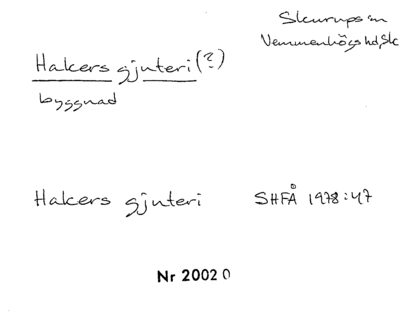 Skurups sn
Vemmenhögs hd, Sk
Hakers gjuteri (?)
byggnad
Hakers gjuteri SHFÅ 1978:47
Nr 2002 0